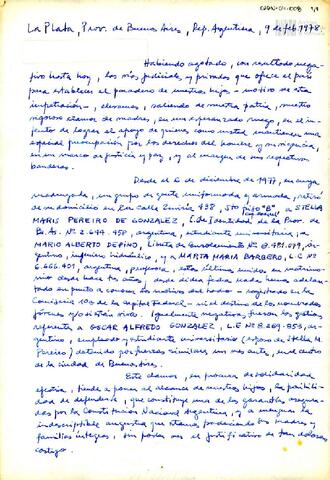 La Plata, Prov. de Buenos Aires, Rep. Argentina, 9 de feb. 1978.
Habiendo agotado, con resultado nega-
tivo hasta hoy, las vías judiciales y privadas que ofrece el país
para establecer el paradero de nuestros hijos - motivo de esta
impetración -, elevamos, saliendo de nuestra patria, nuestro
vigoroso clamor de madres, en un esperanzado ruego, en el in-
tento de lograr el apoyo de quienes como usted mantienen una
especial preocupación por los derechos del hombre y su vigencia,
en un marco de justicia y paz, y al margen de sus respectivas
banderas.
Desde el 6 de diciembre de 1977, en cuya
madrugada, un grupo de gente uniformada y armada, retiró
de su domicilio en la Calle 438, 5to piso "B"
(Cap. Federal) a STELLA
MARIS PEREIRO DE GONZALEZ, C. de Identidad de la Prov. de
Bs. As. Nº 2.694.458, argentina, estudiante universitaria, a
MARIO ALBERTO DEPINO, Libreta de Enrolamiento Nº 8.481.079, ar-
gentino, ingeniero hidráulico, y a MARTA MARIA BARBERO, L.C. Nº
6.666.401, argentina, profesora, estos últimos unidos en matrimo-
nio desde hace dos años, desde dicha fecha, nada hemos adelan-
tado en punto a conocer los motivos del hecho - registrado en la
Comisaría 10ª de la Capital Federal - ni el destino de los nombrados
jóvenes y/o si están vivos. Igualmente negativas fueron las gestiones
referente a OSCAR ALFREDO GONZALEZ, L.E. Nº 8.269.853, ar-
gentino, empleado y estudiante universitario (esposo de Stella M.
Pereiro) detenido por fuerzas similares un mes antes, en el centro
de la ciudad de Buenos Aires.
Este clamor, en procura de solidaridad
efectiva, tiende a poner al alcance de nuestros hijos, la posibilidad
de defenderse, que constituye una de las garantías asegura-
das por la Constitución Nacional Argentina, y a menguar la
indescriptible angustia que estamos padeciendo sus madres y
familias íntegras, sin poder ver el justificativo de tan doloroso
castigo.